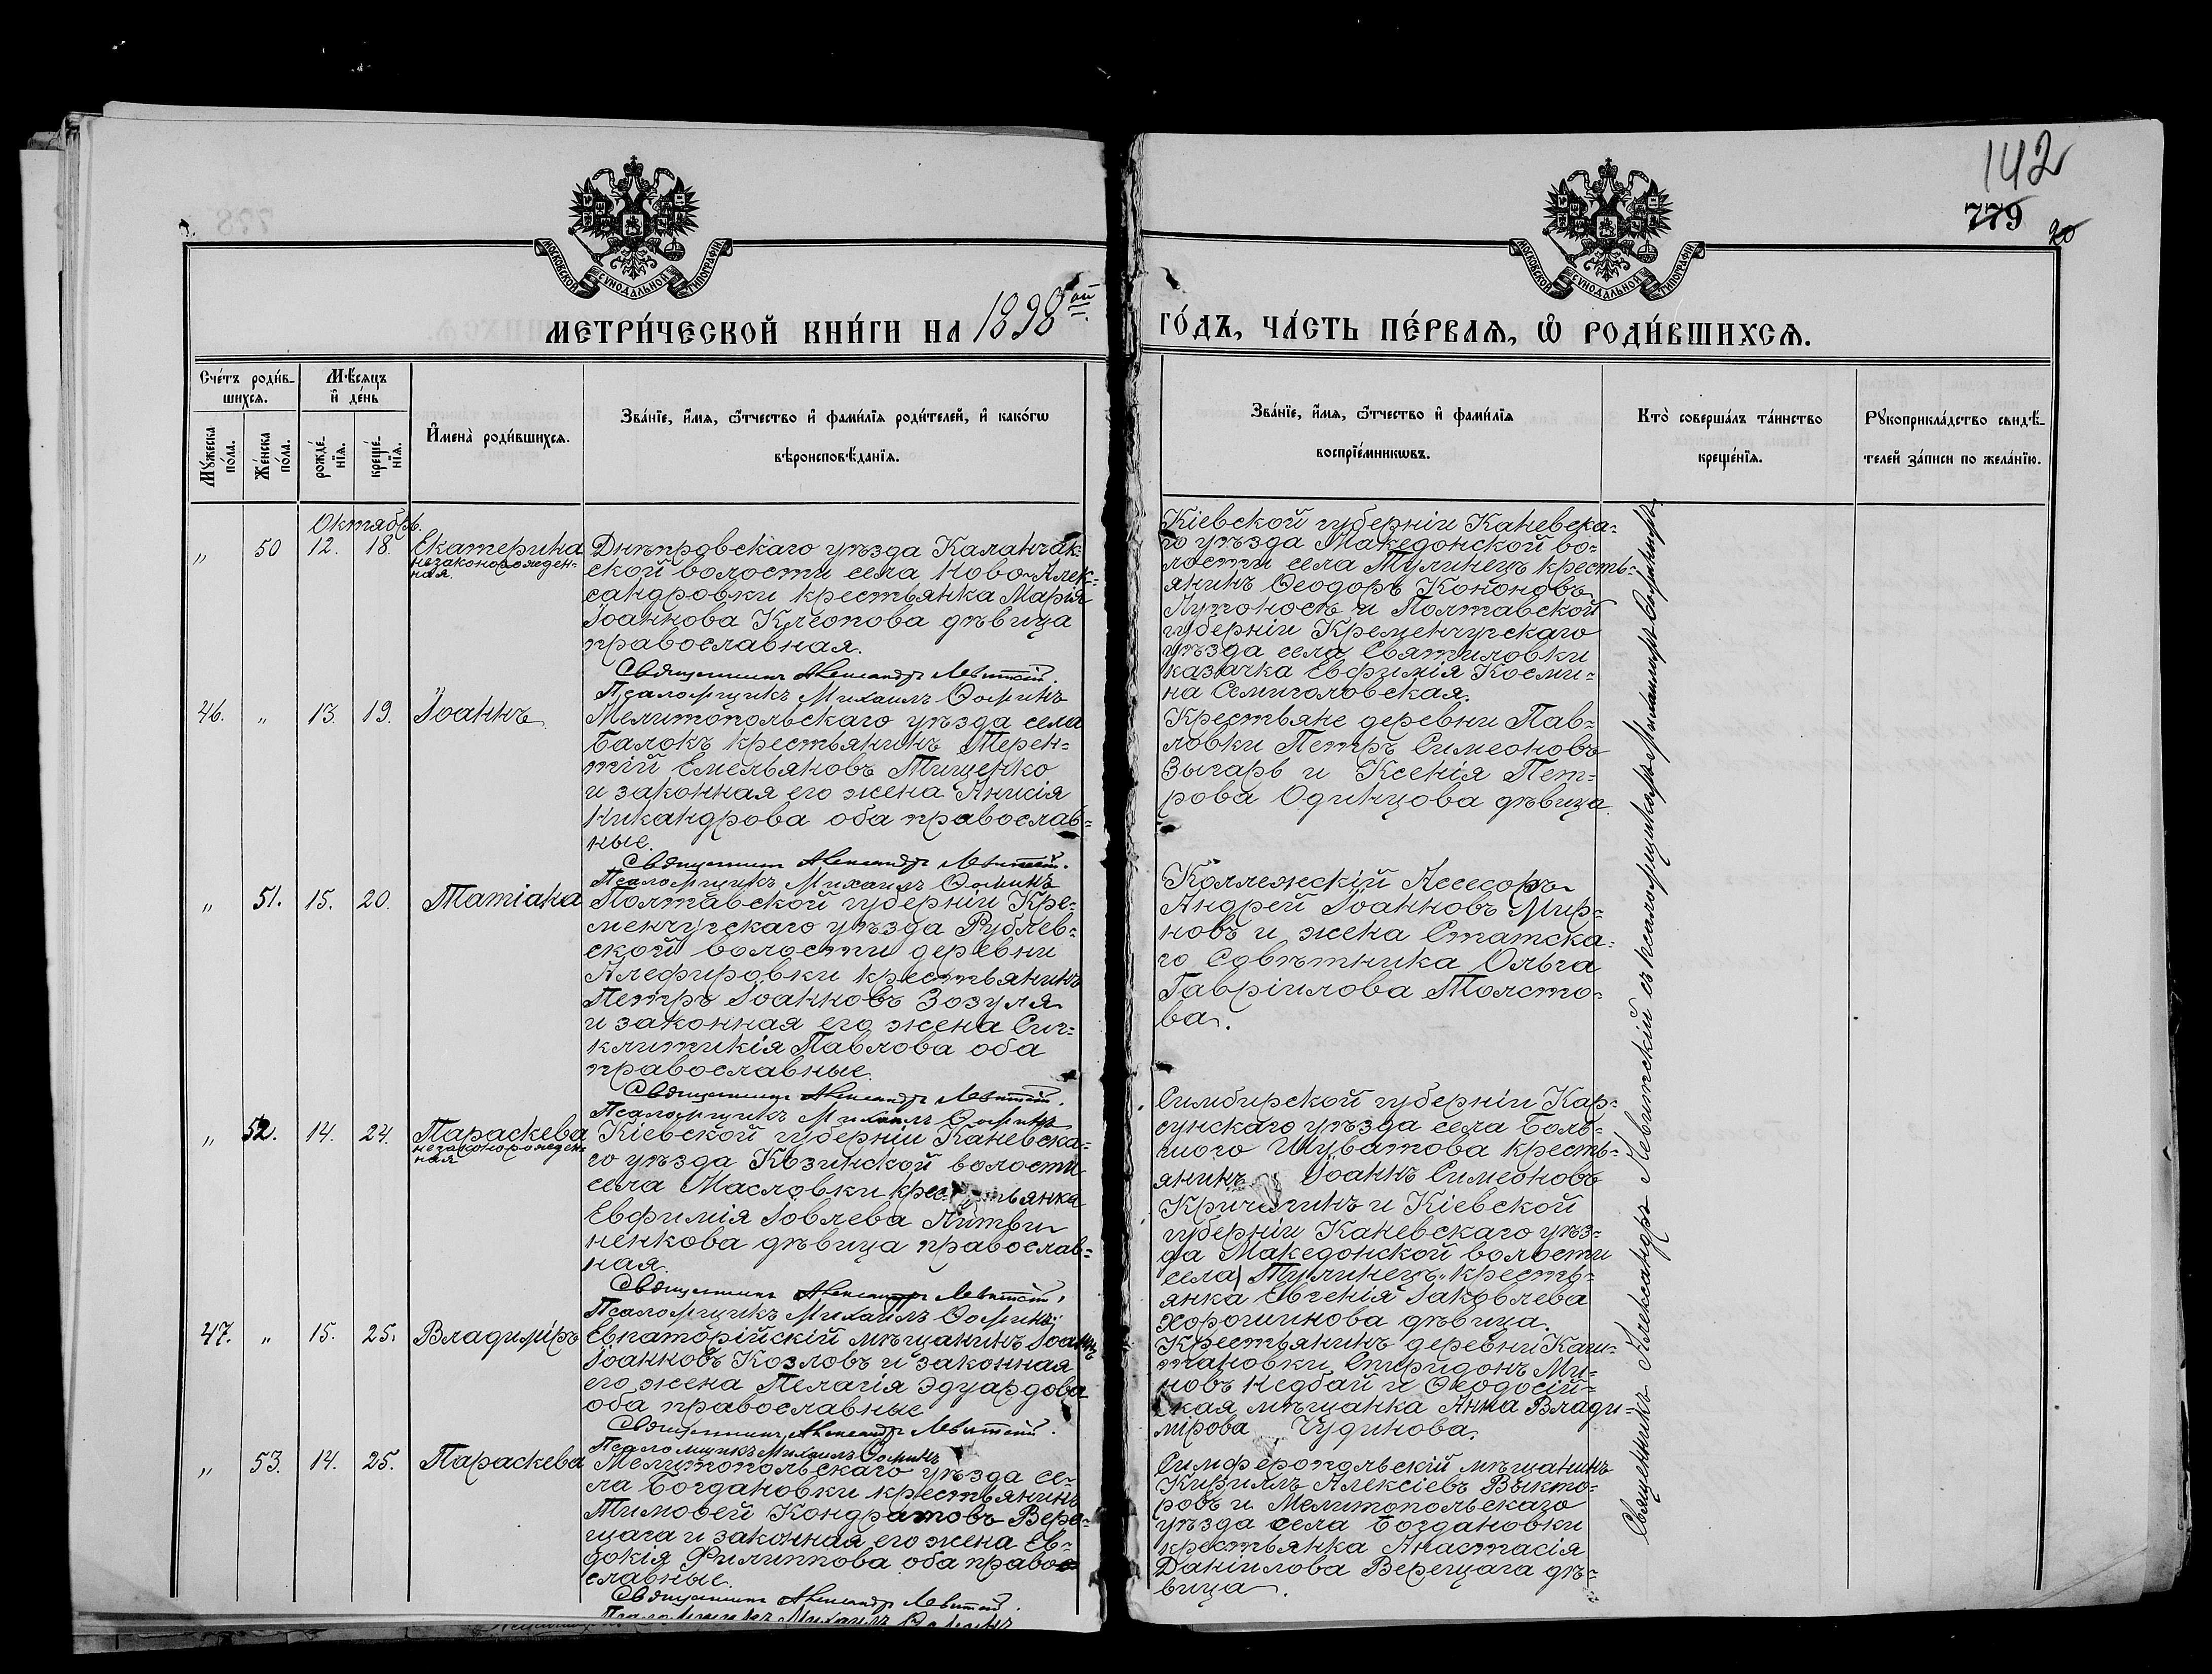 142
779
20
МОСКОВСКОЙ СѴНОДАЛЬНОЙ ТИПОГРАФІИ
МОСКОВСКОЙ СѴНОДАЛЬНОЙ ТИПОГРАФІИ
МЕТРИ́ЧЕСКОЙ КНИ́ГИ НА 1898 ой
ГО́ДЪ, ЧА́СТЬ ПЕ́РВАѦ, Ѡ҆ РОДИ́ВШИХСѦ.
Сче́тъ роди́в-
шихсѧ.
Мѣ́сѧцъ
и҆ де́нь
Мꙋ́жеска
по́ла.
Же́нска
по́ла.
рожде́-
нїѧ.
креще́-
нїѧ.
И҆мена̀ роди́вшихсѧ.
Зва́нїе, и҆́мѧ, ѻ҆́тчество и҆ фами́лїѧ роди́телей, и҆ како́гѡ
вѣроисповѣ́данїѧ.
Зва́нїе, и҆́мѧ, ѻ҆́тчество и҆ фами́лїѧ
воспрїе́мникѡвъ.
Кто̀ соверша́лъ та́инство
креще́нїѧ.
Рꙋкоприкла́дство свидѣ́-
телей за́писи по жела́нїю.
Октябрь.
" 50 12. 18. Екатерина
незаконорожден-
ная.
Днѣпровскаго уѣзда Каланчак-
ской волости села Ново-Алек-
сандровки крестьянка Марія
Іоаннова Клеопова дѣвица
православная.
Священникъ Александръ Левитскій.
Псаломщикъ Михаилъ Ѳоминъ
Кіевской губерніи Каневска-
го уѣзда Македонской во-
лости села Тулинецъ кресть-
янинъ Ѳеодоръ Кононовъ
и Полтавской
губерніи Кременчугскаго
уѣзда села Святиловки
казачка Евфимія Косми-
на Семиголовская.
46. " 13. 19. Іоаннъ
Мелитопольскаго уѣзда села
Балокъ крестьянинъ Терен-
тій Емельяновъ Тищенко
и законная его жена Анисія
Никандрова оба православ-
ные.
Священникъ Александръ Левитскій.
Псаломщикъ Михаилъ Ѳоминъ
Крестьяне деревни Пав-
ловки Петръ Симеоновъ
Зыгарь и Ксенія Пет-
рова Одинцова дѣвица.
" 51. 15. 20. Татіана
Полтавской губерніи Кре-
менчугскаго уѣзда Рублев-
ской волости деревни
Алефировки крестьянинъ
Петръ Іоанновъ Зозуля
и законная его жена Сиг-
клитикія Павлова оба
православные.
Священникъ Александръ Левитскій.
Псаломщикъ Михаилъ Ѳоминъ
Коллежскій Асесоръ
Андрей Іоанновъ Мир-
новъ и жена Статска-
го Совѣтника Ольга
Гавріилова Толсто-
ва.
" 52. 14. 24. Параскева
незаконорожден-
ная
Кіевской губерніи Каневска-
го уѣзда Козинской волости
села Масловки крестьянка
Евфимія Іовлева Литви-
ненкова дѣвица православ-
ная.
Священникъ Александръ Левитскій.
Псаломщикъ Михаилъ Ѳоминъ
Симбирской губерніи Кар-
сунскаго уѣзда села Боль-
шого Шуватова кресть-
янинъ Іоаннъ Симеоновъ
Кричигинъ и Кіевской
губерніи Каневскаго уѣз-
да Македонской волости
села Тулинецъ кресть-
янка Евгенія Іаковлева
Хорошинова дѣвица.
47. " 15. 25. Владиміръ
Евпаторійскій мѣщанинъ Іоаннъ
Іоанновъ Козловъ и законная
его жена Пелагія Эдуардова
оба православные
Священникъ Александръ Левитскій.
Псаломщикъ Михаилъ Ѳоминъ
Крестьянинъ деревни Капи-
тановки Спиридонъ Ми-
новъ Недбай и Ѳеодосій-
ская мѣщанка Анна Влади-
мірова Чудинова.
" 53. 14. 25. Параскева
Мелитопольскаго уѣзда се-
ла Богдановки крестьянинъ
Тимоѳей Кондратовъ Вере-
щага и законная его жена Ев-
докія Филиппова оба право-
славные.
Священникъ Александръ Левитскій.
Псаломщикъ Михаилъ Ѳоминъ
Симферопольскій мѣщанинъ
Кириллъ Алексіевъ Выкто-
ровъ и Мелитопольскаго
уѣзда села Богдановки
крестьянка Анастасія
Даніилова Верещага дѣ-
вица.
Священникъ Александръ Левитскій съ псаломщикомъ Михаиломъ Ѳоминымъ